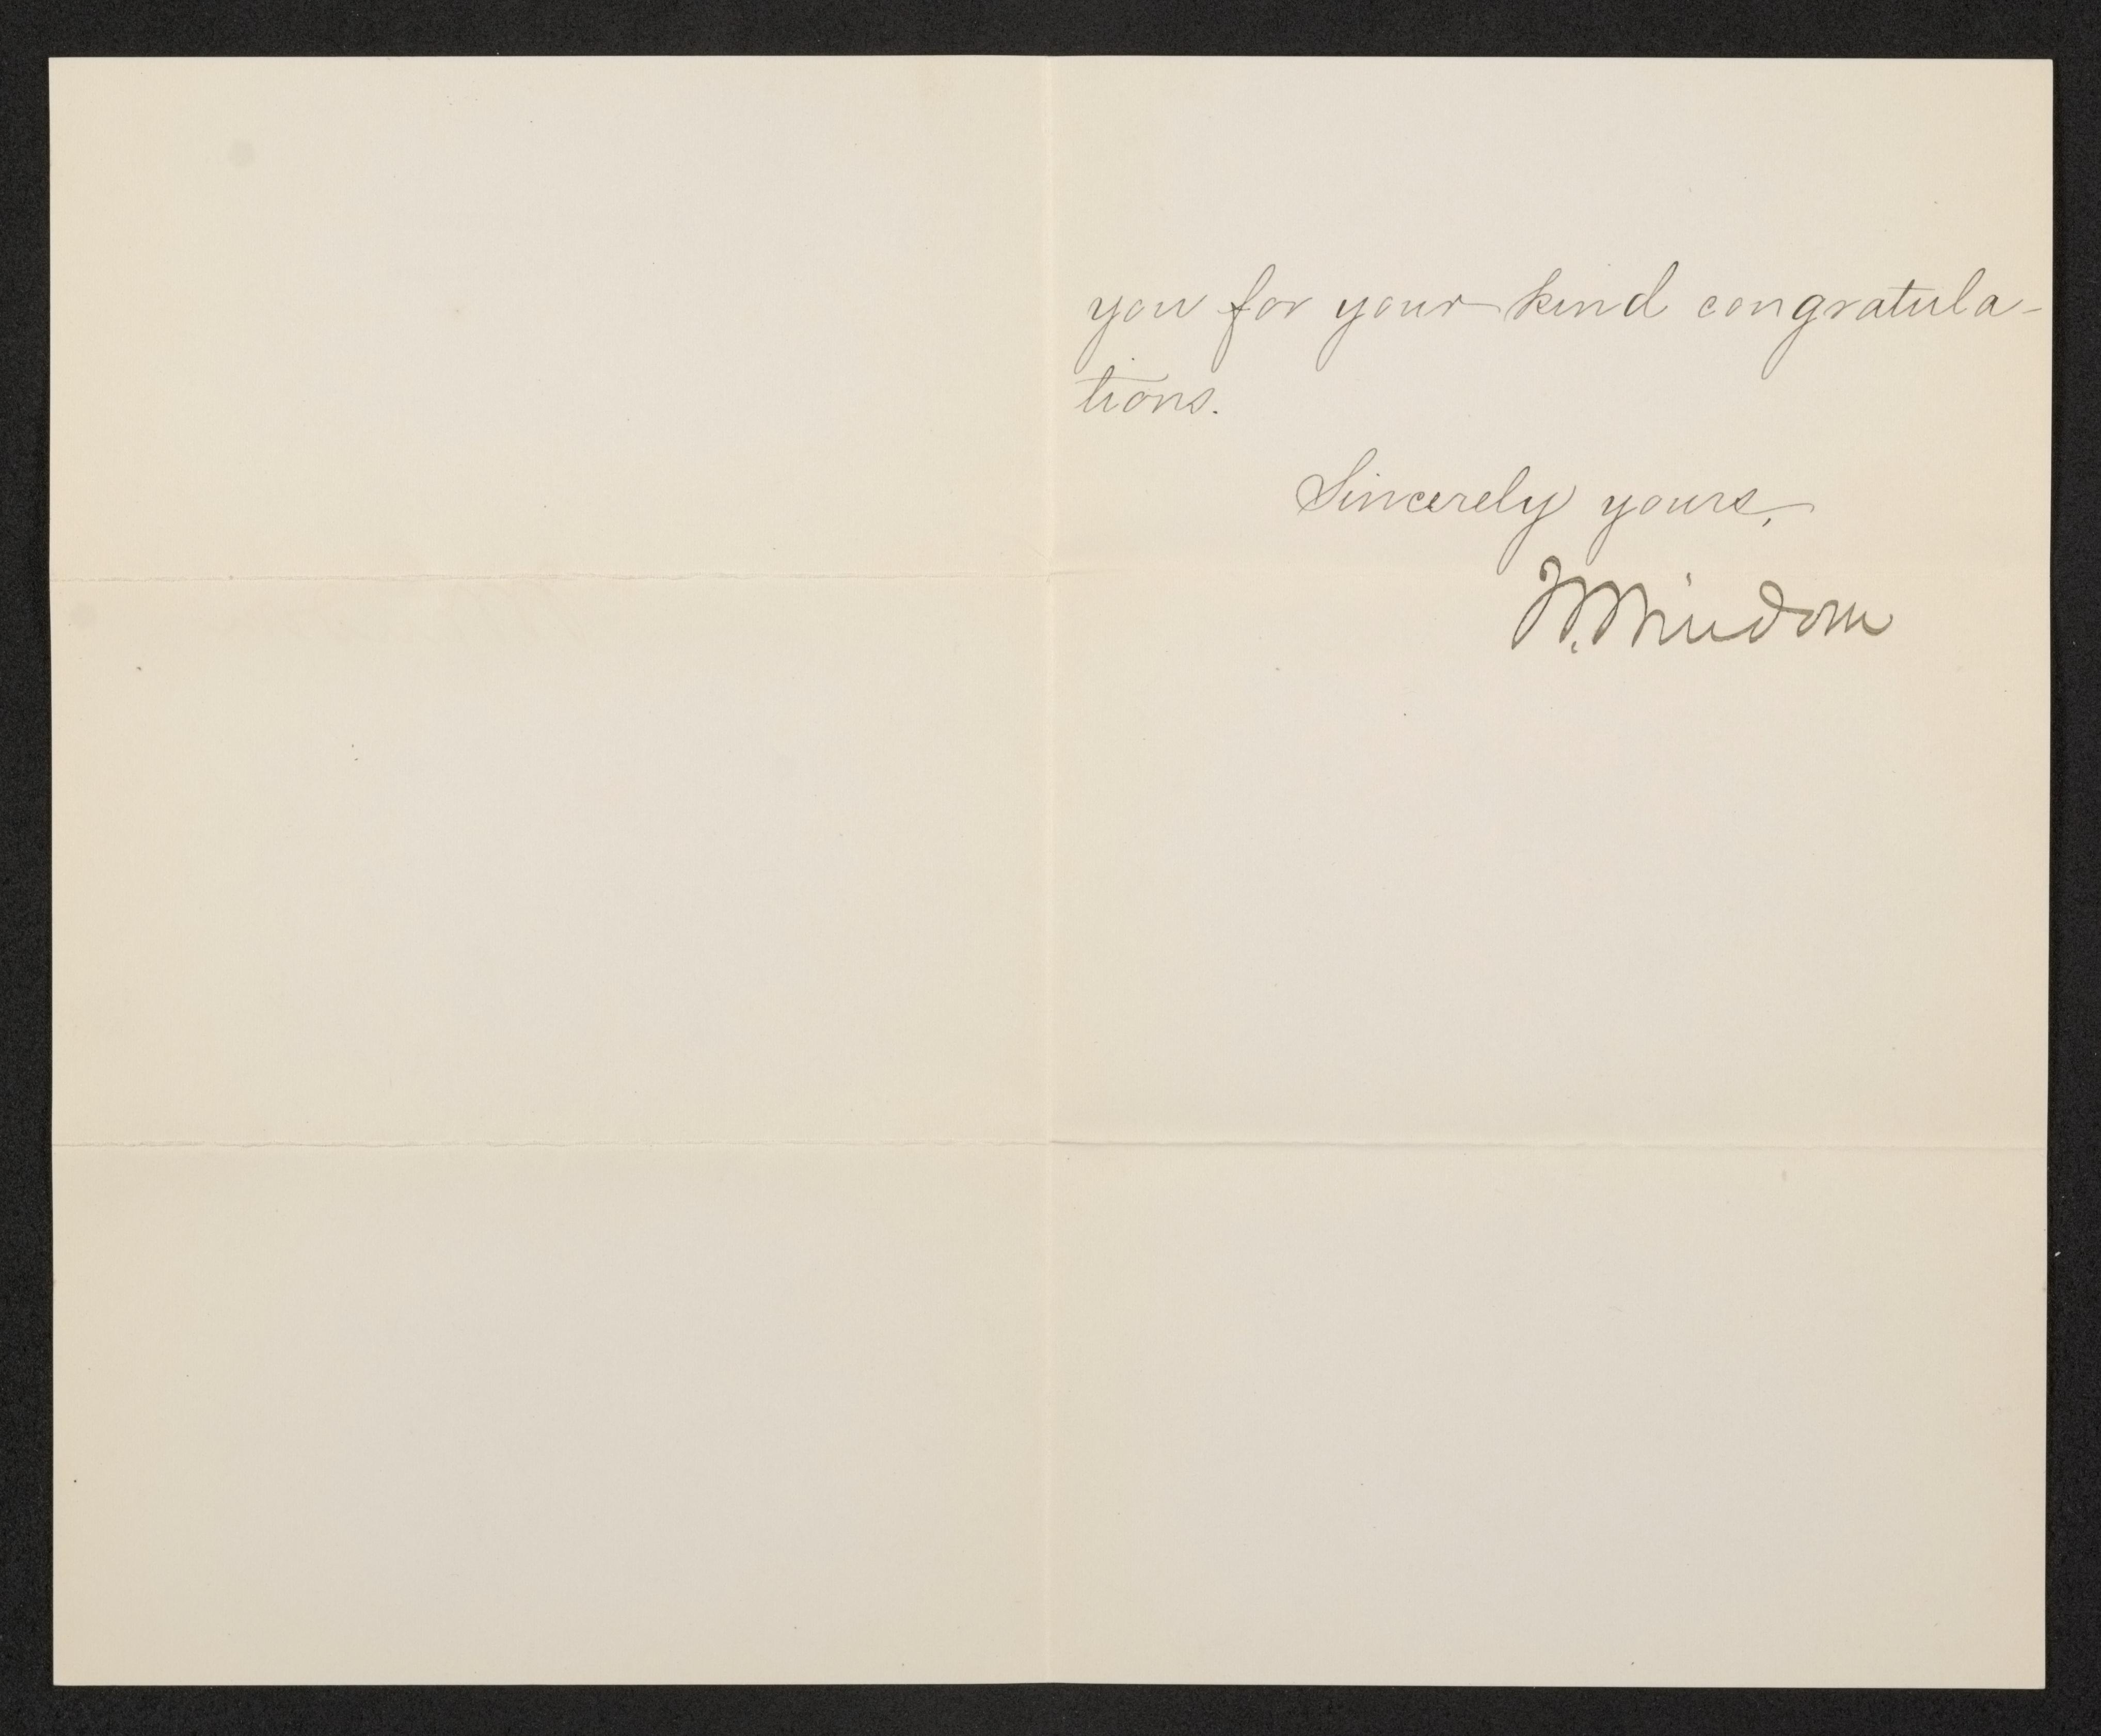 you for your kind congratula-
tions.
Sincerely yours,
W. Windom